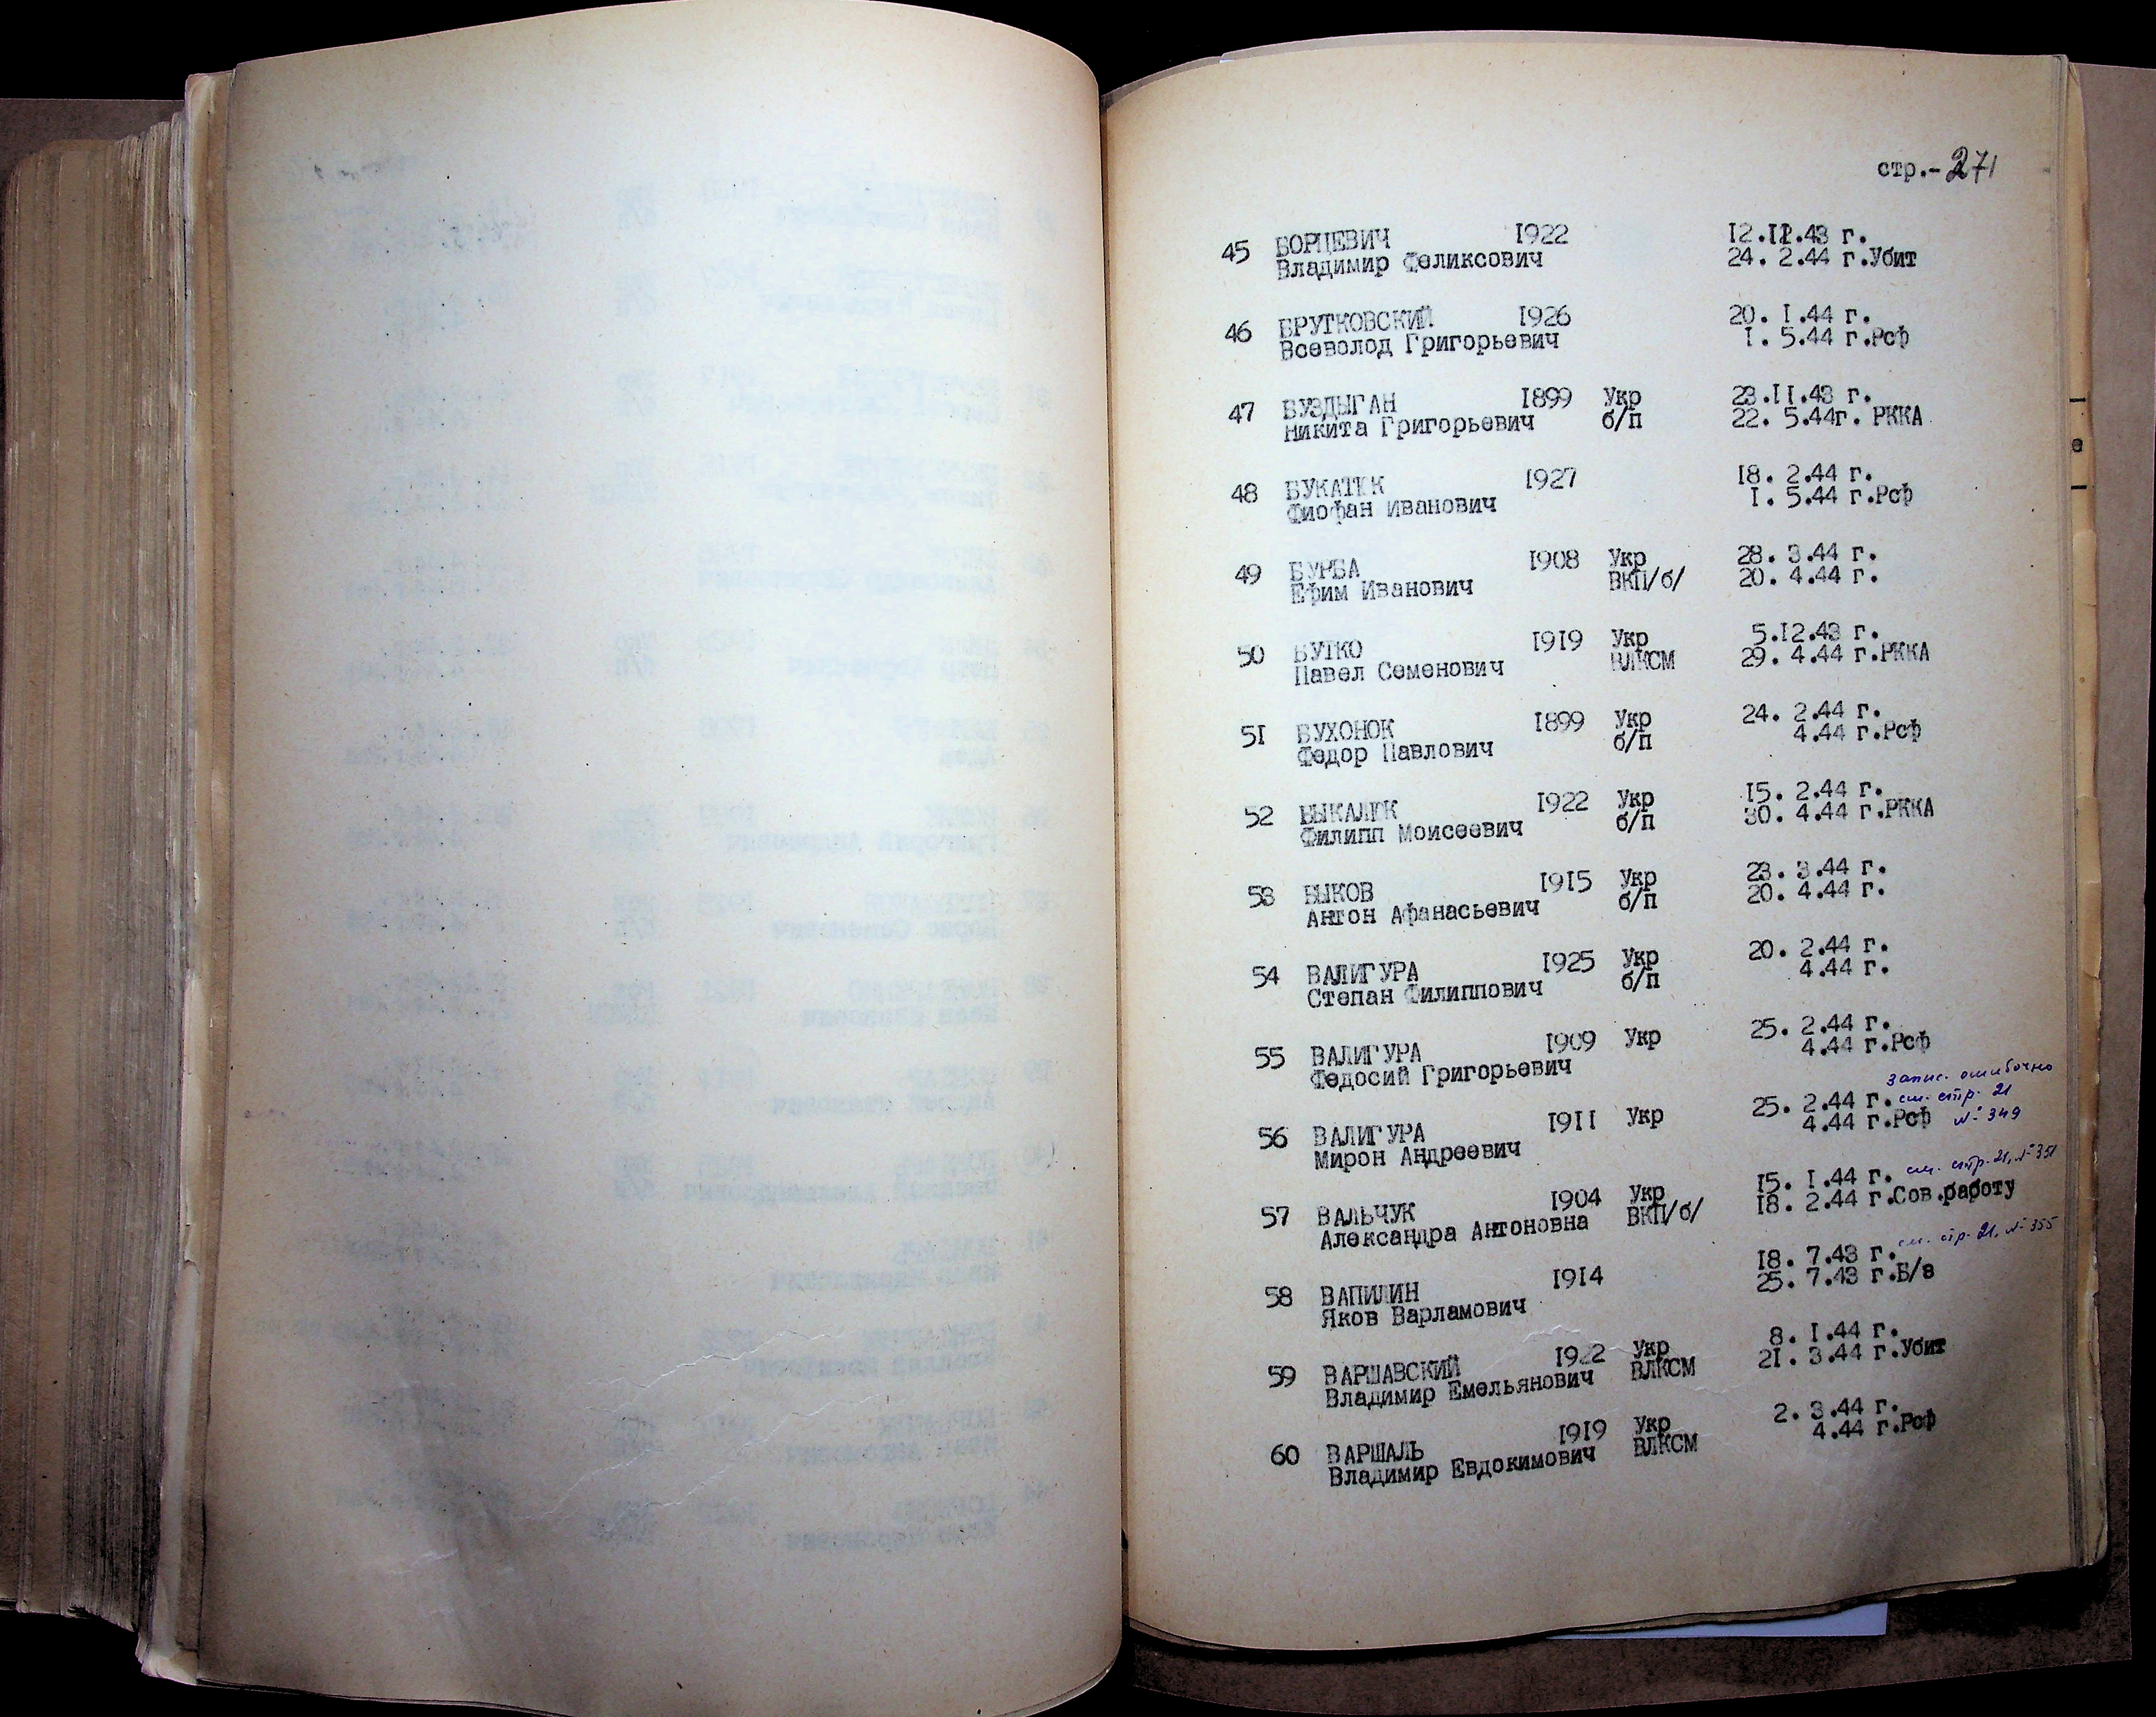 стр.-271
45 БОРЦЕВИЧ 1922 12.12.43 г.
Владимир Феликсович 24. 2.44 г.Убит
46 БРУТКОВСКИЙ 1926 20. I.44 г.
Всеволод Григорьевич I. 5.44 г.Рсф
47 БУЗДЫГАН 1899 Укр 23.II.43 г.
Никита Григорьевич б/п 22. 5.44г. РККА
48 БУКАТЮК 1927 18. 2.44 г.
Фиофан Иванович I. 5.44 г.Рсф
49 БУРБА 1908 Укр 28. 3.44 г.
Ефим Иванович ВКП/б/ 20. 4.44 г.
50 БУТКО 1919 Укр 5.12.43 г.
Павел Семенович ВЛКСМ 29. 4.44 г.РККА
51 БУХОНОК 1899 Укр 24. 2.44 г.
Федор Павлович б/п 4.44 г.Рсф
52 БЫКАЛЮК 1922 Укр 15. 2.44 г.
Филипп Моисеевич б/п 30. 4.44 г.РККА
53 БЫКОВ 1915 Укр 23. 3.44 г.
Антон Афанасьевич б/п 20. 4.44 г.
54 ВАЛИГУРА 1925 Укр 20. 2.44 г.
Степан Филиппович б/п 4.44 г.
55 ВАЛИГУРА 1909 Укр 25. 2.44 г.
Федосий Григорьевич 4.44 г.Рсф
запис. ошибочно
56 ВАЛИГУРА 1911 Укр 25. 2.44 г. см. стр. 21
Мирон Андреевич 4.44 г.Рсф № 349
57 ВАЛЬЧУК 1904 Укр 15. I.44 г. см. стр. 21, № 351
Александра Антоновна ВКП/б/ 18. 2.44 г.Сов.работу
58 ВАПИЛИН 1914 18. 7.43 г. см. стр. 21, № 355
Яков Варламович 25. 7.43 г.Б/в
59 ВАРШАВСКИЙ 1922 Укр 8. I.44 г.
Владимир Емельянович ВЛКСМ 21. 3.44 г.Убит
60 ВАРШАЛЬ 1919 Укр 2. 3.44 г.
Владимир Евдокимович ВЛКСМ 4.44 г.Рсф
е